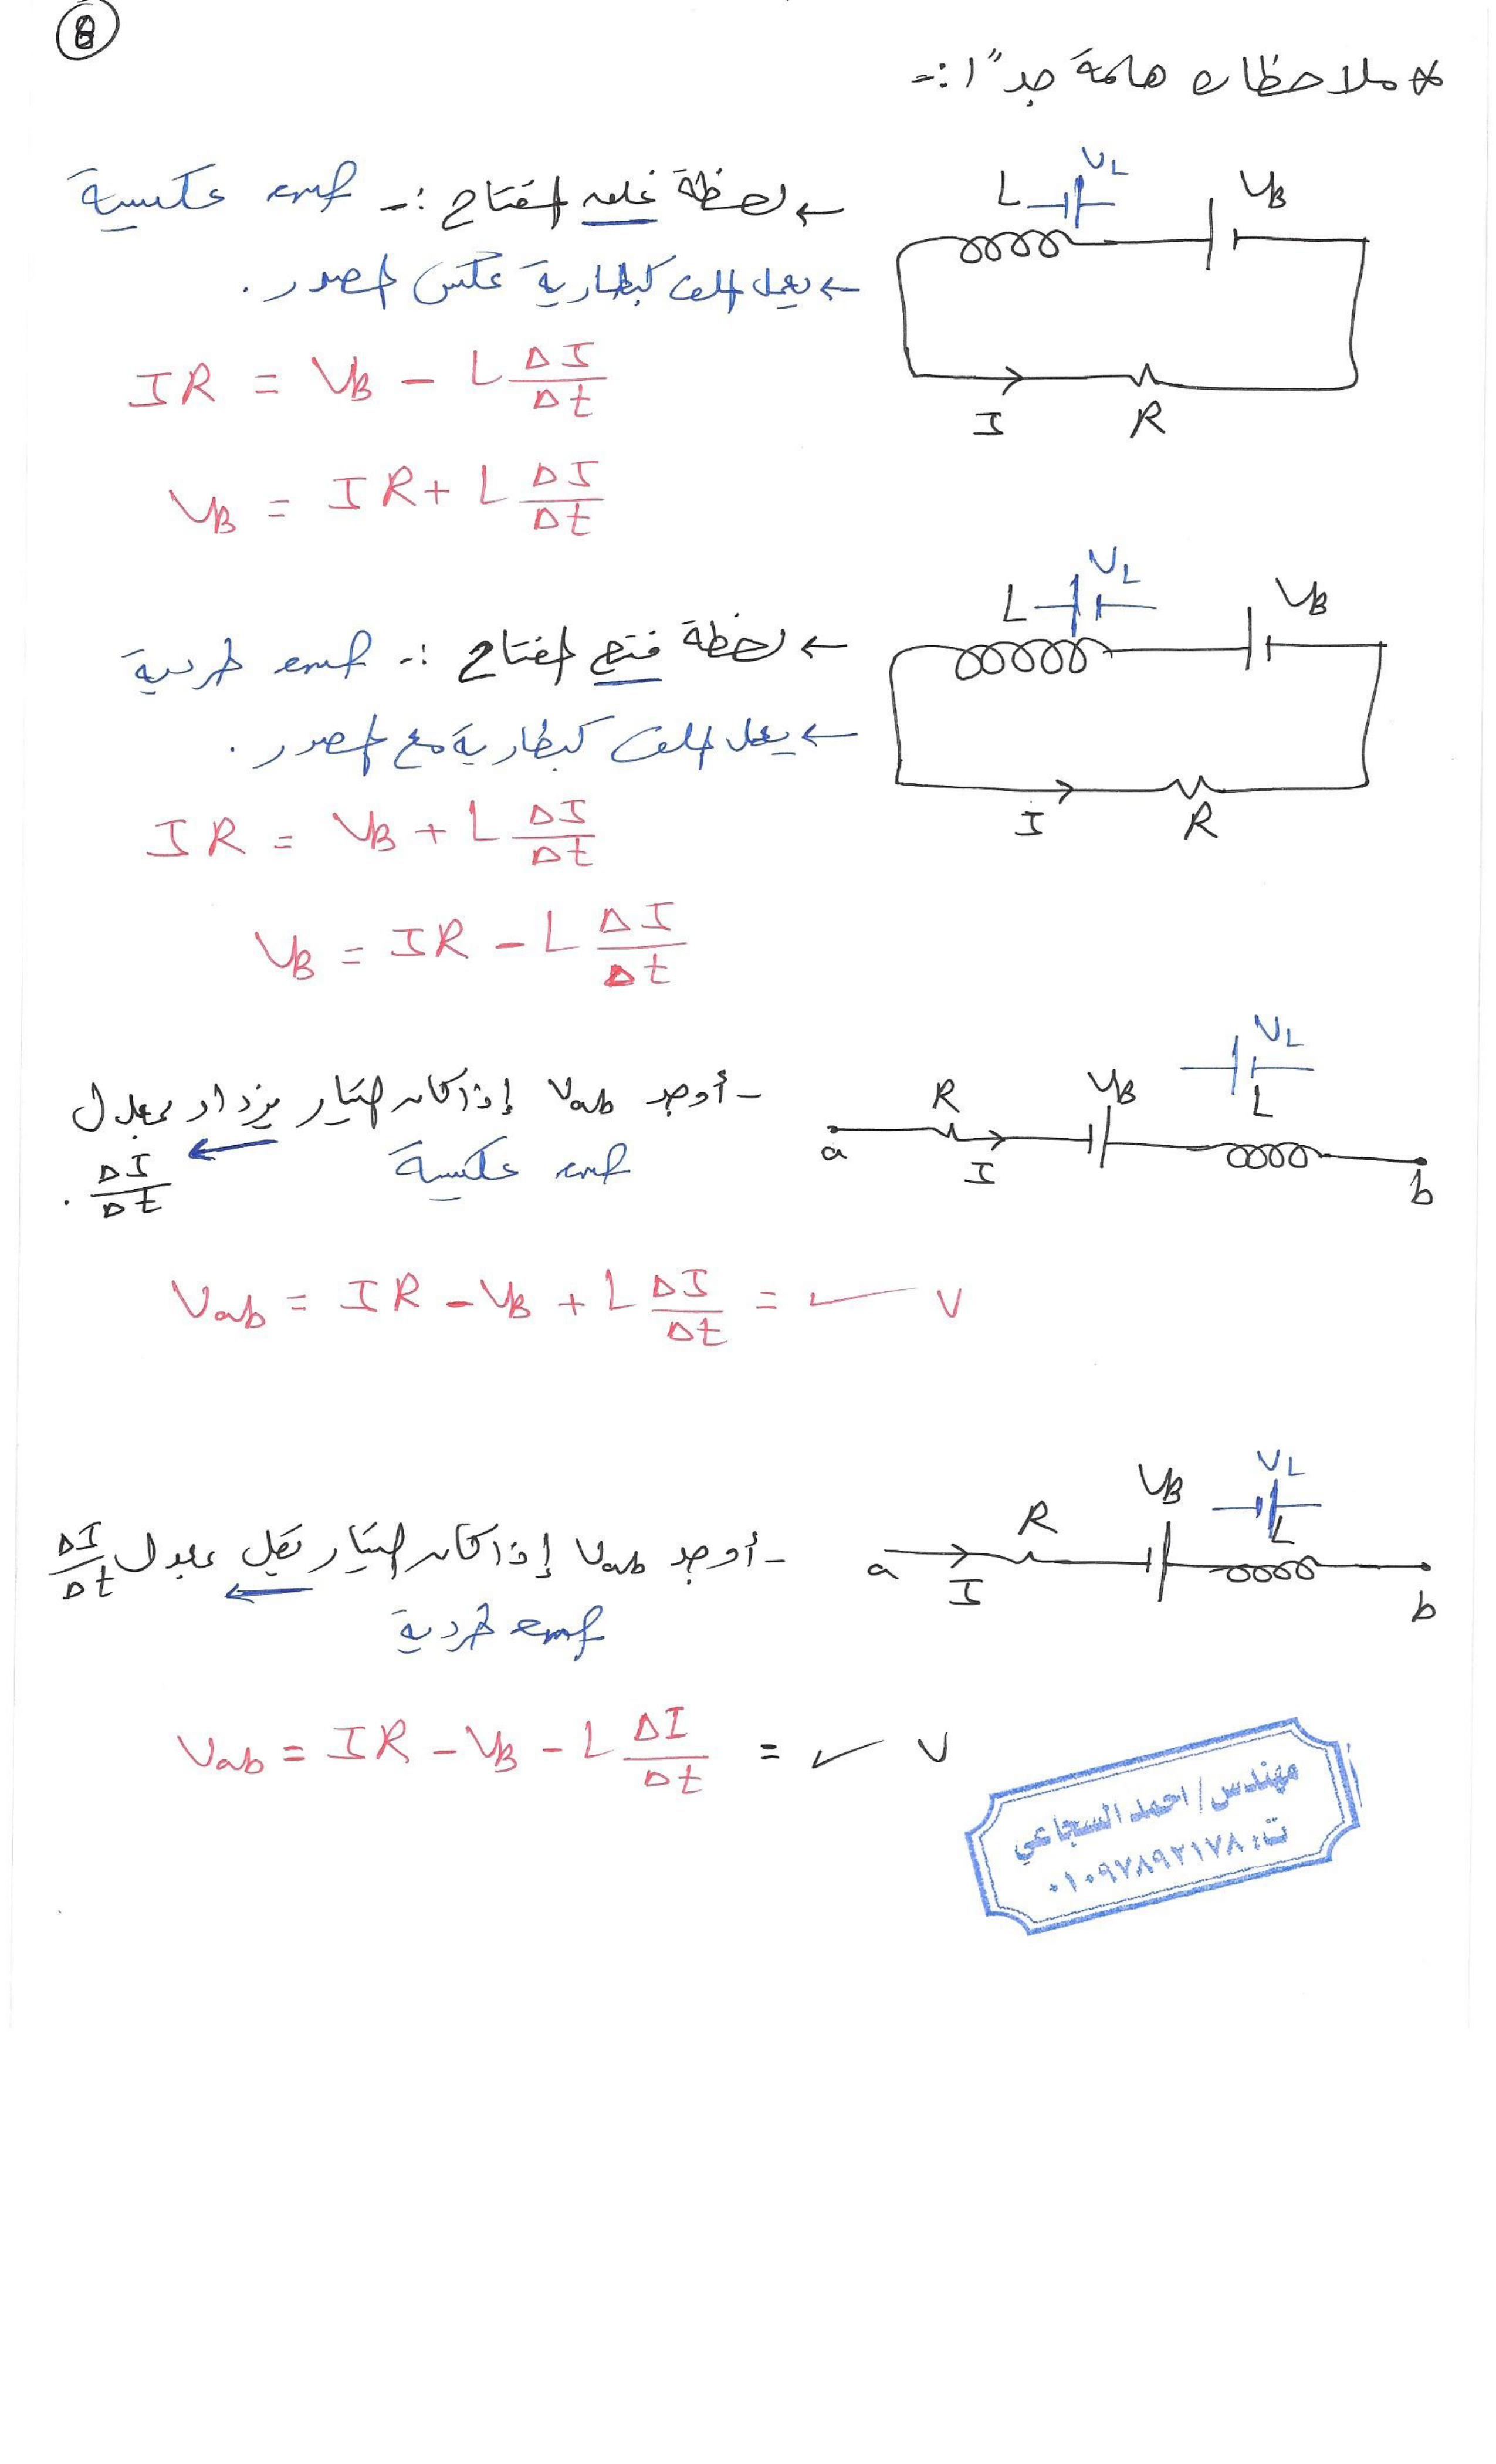 8
* ملاحظات هامة جداً :-
L VL VB
← لحظة غلق المفتاح :- emf عكسية
← يعمل الملف كبطارية عكس المصدر .
I R
IR = VB - L ΔI/Δt
VB = IR + L ΔI/Δt
L VL VB
← لحظة فتح المفتاح :- emf طردية
← يعمل الملف كبطارية مع المصدر .
I R
IR = VB + L ΔI/Δt
VB = IR - L ΔI/Δt
VL
a R I VB L b
- أوجد Vab إذا كان التيار يزداد بمعدل
ΔI/Δt .
emf عكسية
Vab = IR - VB + L ΔI/Δt = ✓ V
VL
a I R VB L b
- أوجد Vab إذا كان التيار يقل بمعدل ΔI/Δt
emf طردية
Vab = IR - VB - L ΔI/Δt = ✓ V
مهندس/احمد السجاعي
ت: ٠١٠٩٧٨٩٢١٧٨